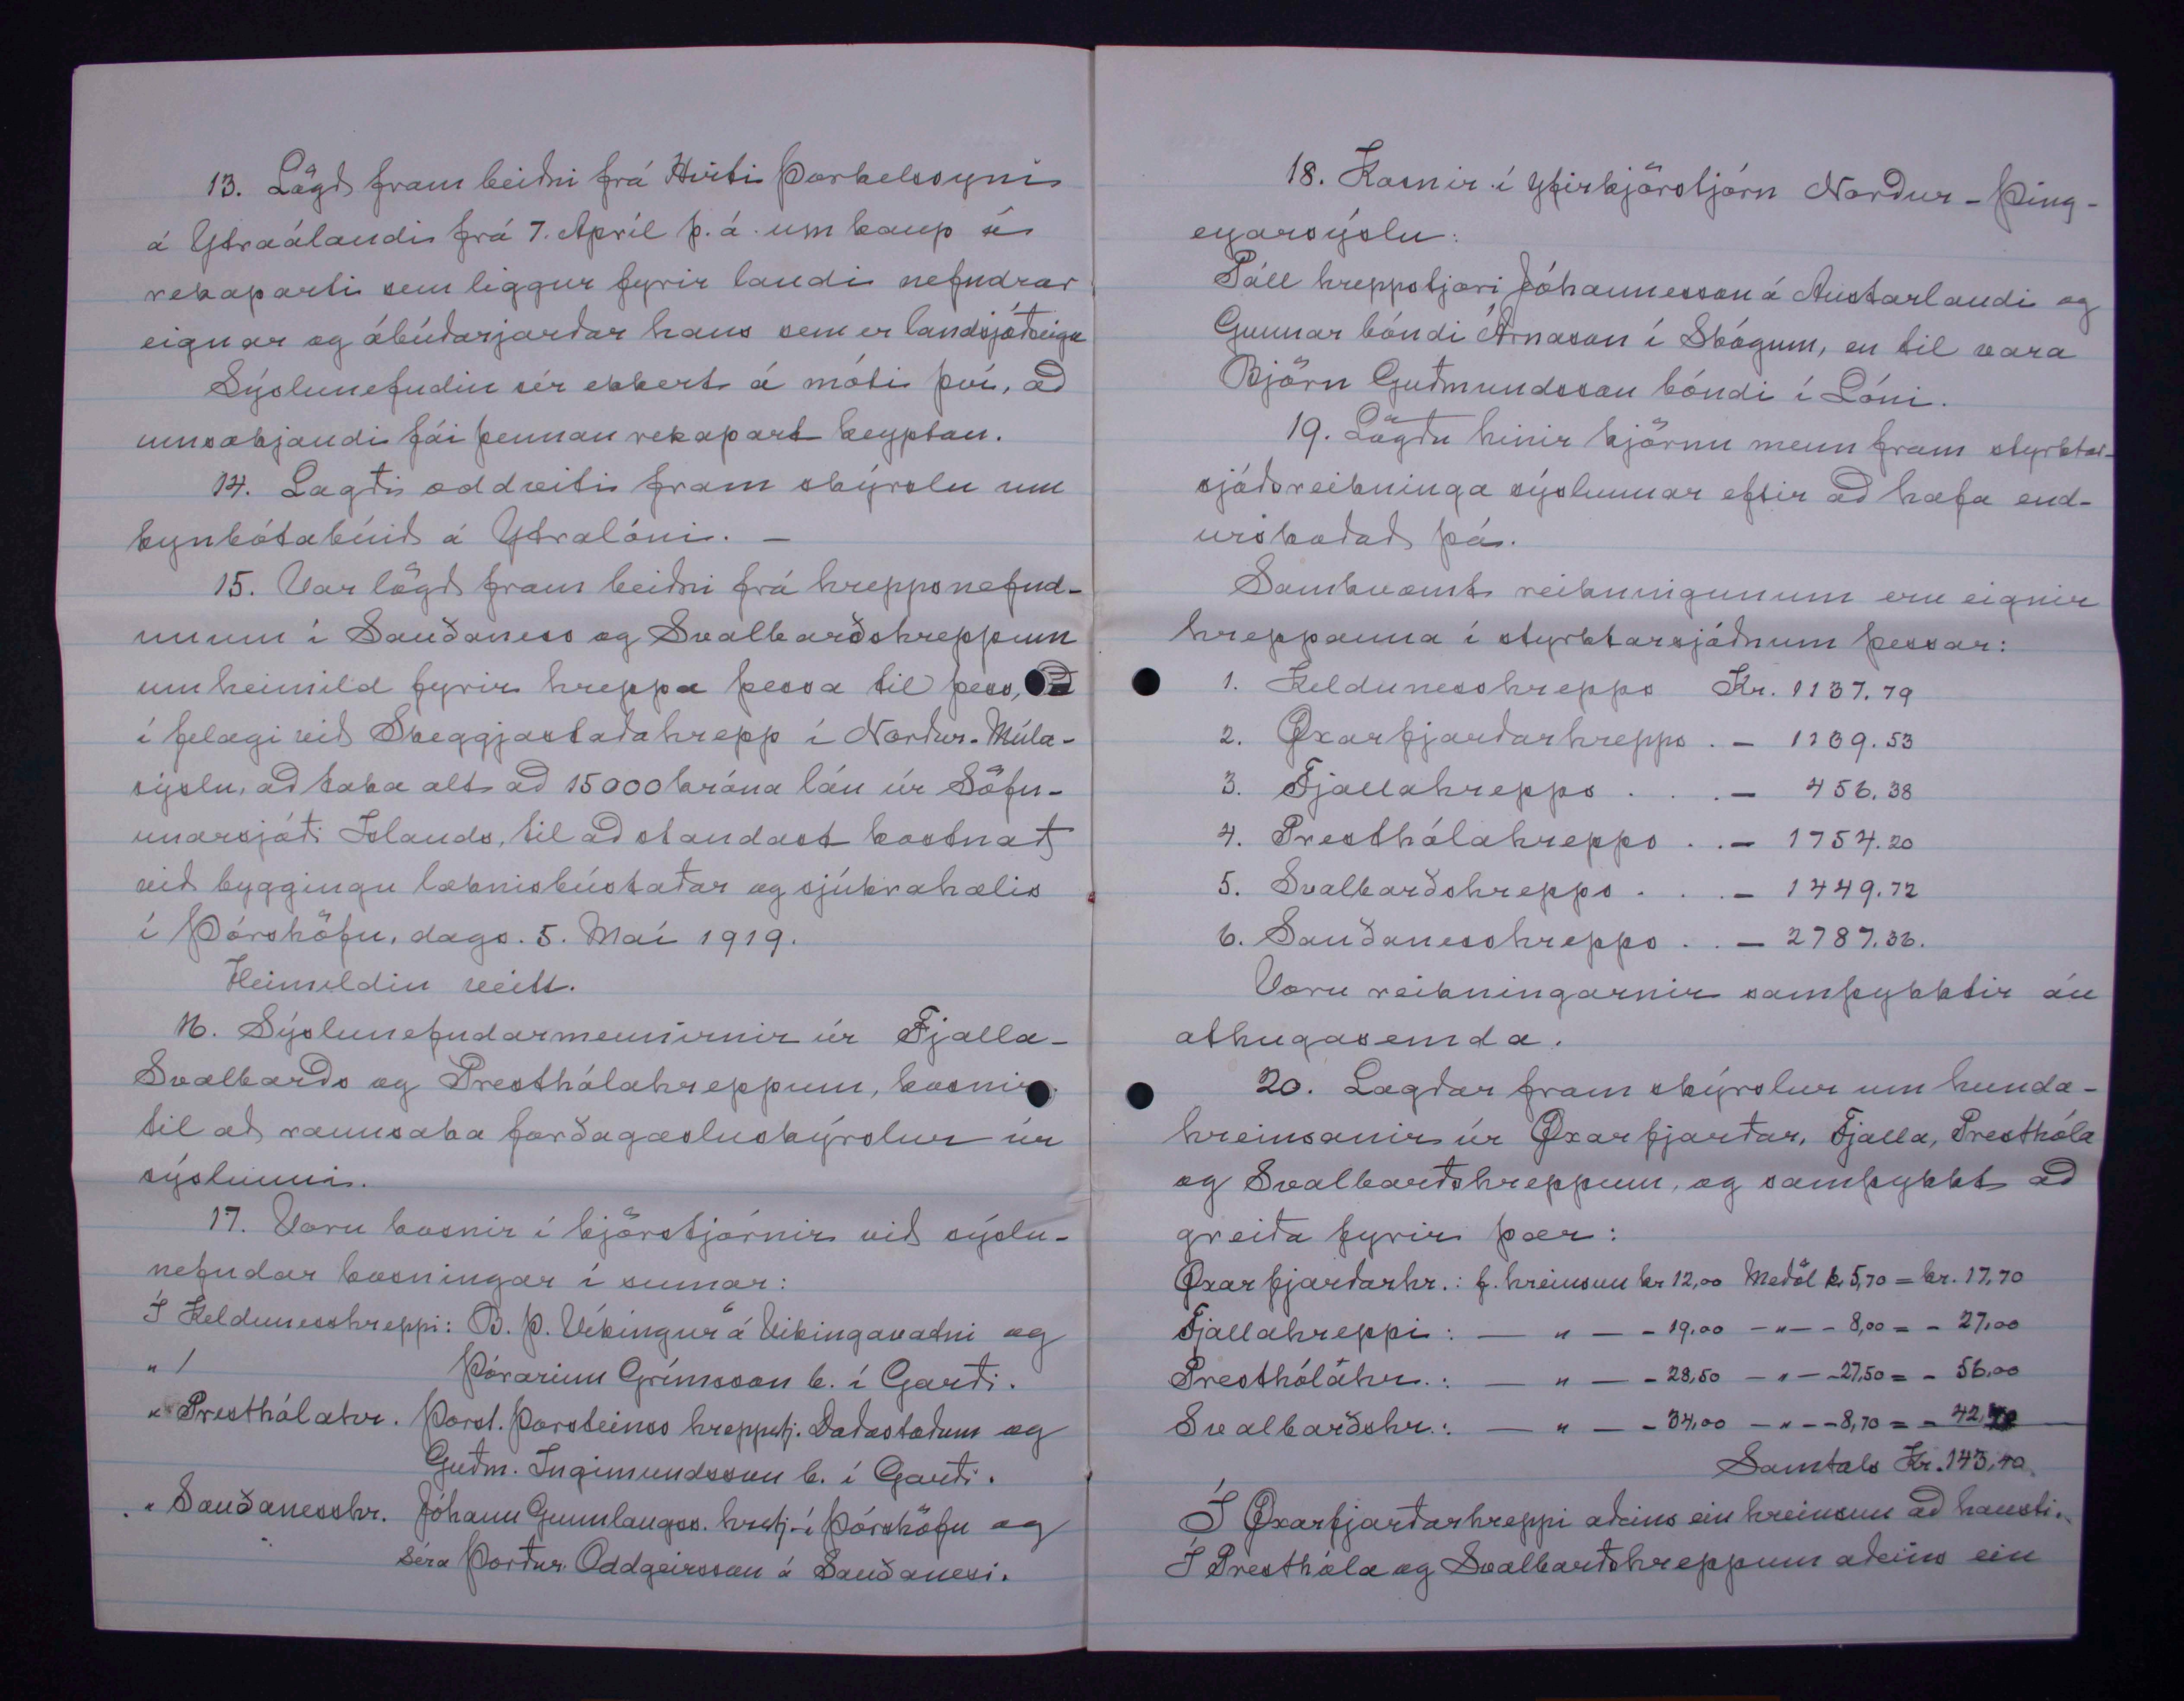 13. Lögð fram beiðni frá Hirti Þorkelssyni
á Ytraálandi frá 7. Apríl þ. á. um kaup á
rekaparti sem liggur fyrir landi nefndrar
eignar og ábúðarjarðar hans sem er landsjóðseign
Sýslunefndin sér ekkert á móti því, að
umsækjandi fái þennan rekapart keyptan.
14. Lagði oddviti fram skýrslu um
kynbótabúið á Ytralóni. —
15. Var lögð fram beiðni frá hreppsnefnd-
unum í Sauðaness og Svalbarðshreppum
um heimild fyrir hreppa þessa til þess, að
í félagi við Skeggjastaðahrepp í Norður-Múla-
sýslu, að taka alt að 15000 króna lán úr Söfn-
unarsjóði Islands, til að standast kostnað
við byggingu læknisbústaðar og sjúkrahælis
í Þórshöfn, dags. 5. Maí 1919.
Heimildin veitt.
16. Sýslunefndarmennirnir úr Fjalla-
Svalbarðs og Presthólahreppum, kosnir
til að rannsaka forðagæsluskýrslur úr
sýslunni.
17. Voru kosnir í kjörstjórnir við sýslu-
nefndar kosningar í sumar:
Í Keldunesshreppi: B. Þ. Víkingur á Víkingavatni og
" / Þórarinn Grímsson b. í Garði.
" Presthólahr. Þorst. Þorsteinss hreppstj. Daðastöðum og
Guðm. Ingimundsson b. í Garði.
" Sauðanesshr. Jóhann Gunnlaugss. hrstj. í Þórshöfn og
Séra Þórður Oddgeirsson á Sauðanesi.
18. Kosnir í Yfirkjörstjórn Norður-Þing-
eyarsýslu:
Páll hreppstjóri Jóhannesson á Austarlandi og
Gunnar bóndi Árnason í Skógum, en til vara
Björn Guðmundsson bóndi í Lóni.
19. Lögðu hinir kjörnu menn fram styrktar-
sjóðsreikninga sýslunnar eftir að hafa end-
urskoðað þá.
Samkvæmt reikningunum eru eignir
hreppanna í styrktarsjóðnum þessar:
1. Keldunesshrepps Kr. 1137.79
2. Øxarfjarðarhrepps . — 1139.53
3. Fjallahrepps . . . — 456.38
4. Presthólahrepps . . — 1754.20
5. Svalbarðshrepps . . . — 1449.72
6. Sauðanesshrepps . . — 2787.36.
Voru reikningarnir samþykktir án
athugasemda.
20. Lagðar fram skýrslur um hunda-
hreinsanir úr Øxarfjarðar, Fjalla, Presthóla
og Svalbarðshreppum, og samþykkt að
greiða fyrir þær:
Øxarfjarðarhr.: f. hreinsun kr 12,00 Meðöl k. 5,70 = kr. 17,70
Fjallahreppi: — " — - 19,00 — " — - 8,00 = - 27,00
Presthólahr.: — " — - 28,50 — " — - 27,50 = - 56,00
Svalbarðshr.: — " — - 34,00 — " — - 8,70 = - 42,70
Samtals Kr. 143,40
Í Øxarfjarðarhreppi aðeins ein hreinsun að hausti.
Í Presthóla og Svalbarðshreppum aðeins ein